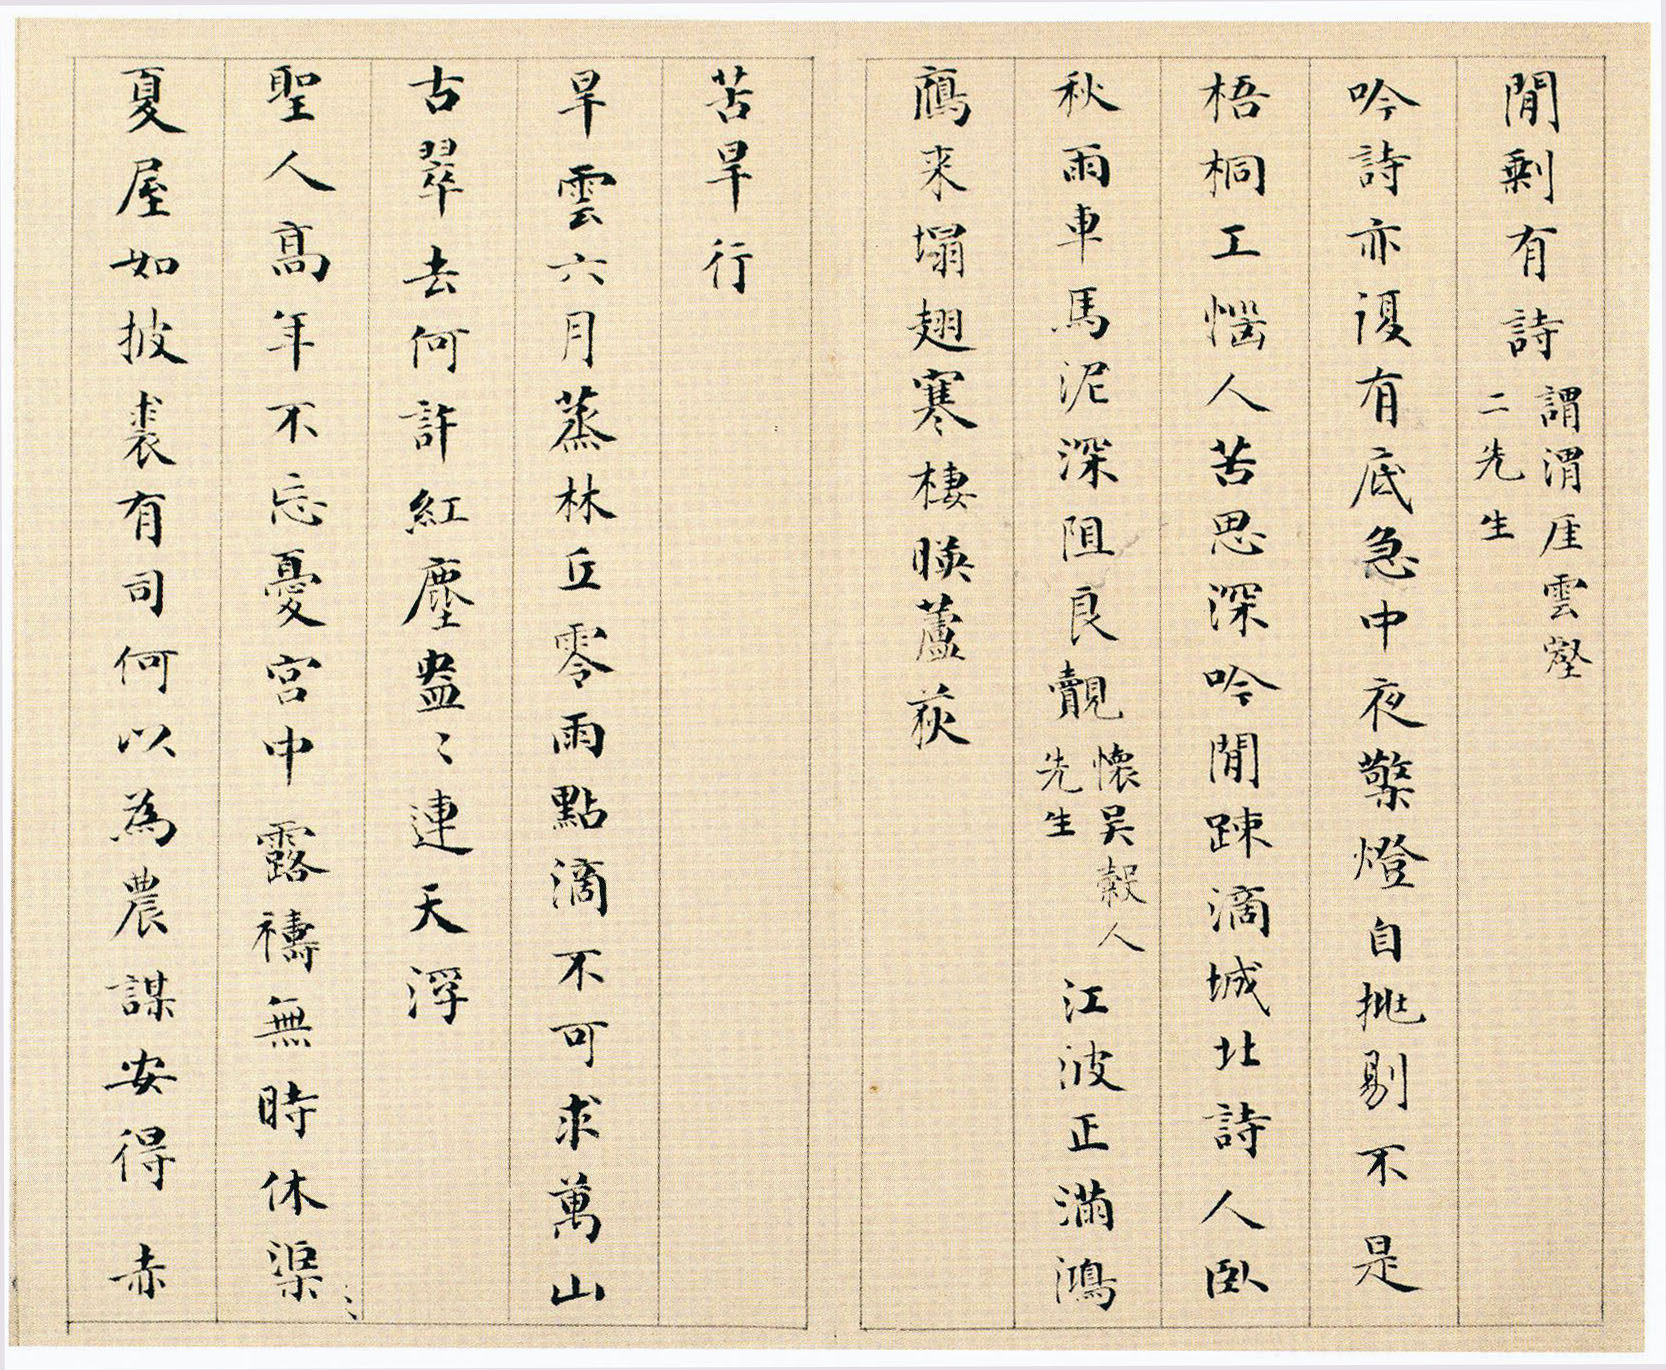 閒剩有詩謂渭厓雲壑二先生
吟詩亦復有底急中夜擎燈自挑剔不是
梧桐工惱人苦思深吟閒踈滴城北詩人臥
秋雨車馬泥深阻良覿懷吴穀人先生江波正滿鴻
鴈来塌翅寒棲暎蘆荻
苦旱行
旱雲六月蒸林丘零雨點滴不可求萬山
古翠去何許紅塵盎〻連天浮
聖人髙年不忘憂宮中露禱無時休渠〻
夏屋如披裘有司何以為農謀安得赤